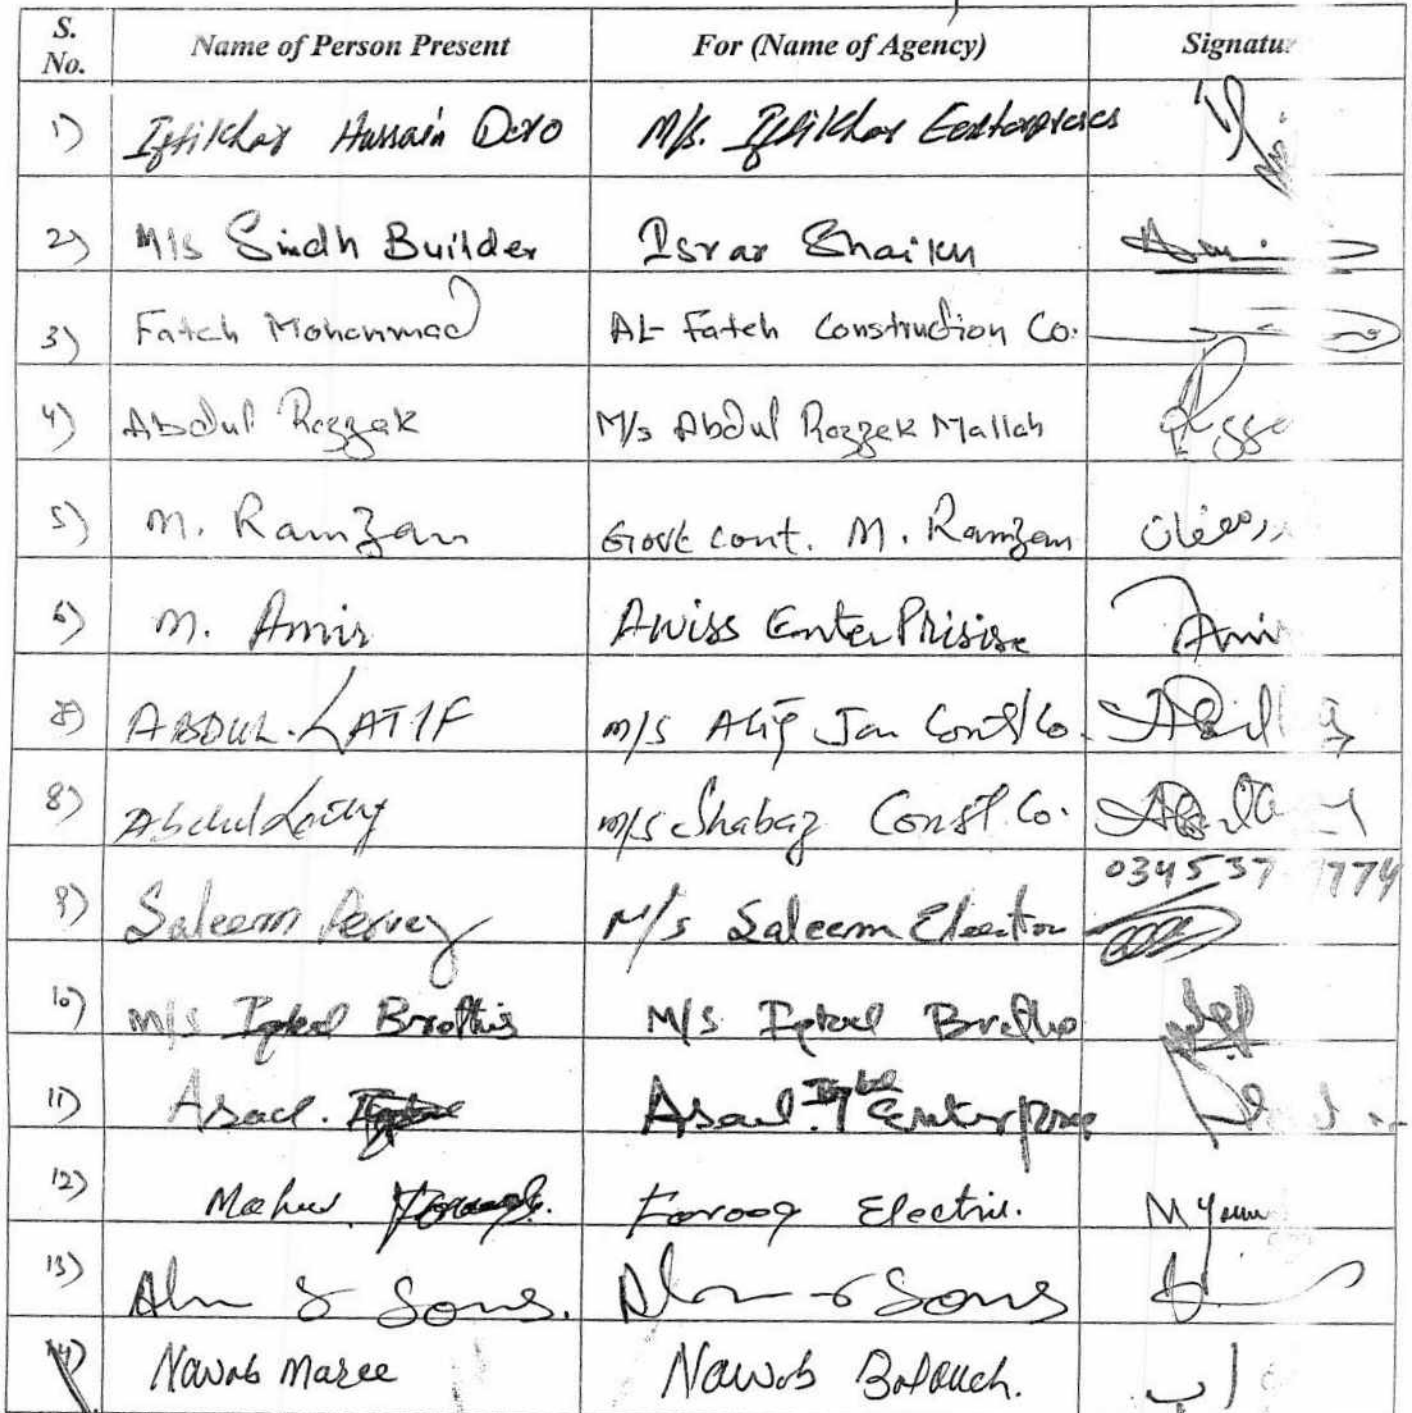 S. No. Name of Person Present For (Name of Agency) Signatu
1) Iftikhar Hussain Dero M/s. Iftikhar Eenterpreses
2) M/s Sindh Builder Israr Shaikh
3) Fateh Mohammad AL-Fateh Construction Co.
4) Abdul Razzak M/s Abdul Razzak Mallah
5) M. Ramzan Govt cont. M. Ramzan رمضان
6) M. Amir Awiss EnterPrisise Amir
ABDUL. LATIF M/S Jan Const Co.
8) Abdul Latif M/S Shabaz Const. Co.
9) Saleem Pervez M/s Saleem Electron 034537 7774
10) M/s Iqbal Brothis M/s Iqbal
11) Asad. Asad. Iqbal Enterprise
12) Farooq Electric. M
13) & Sons. & Sons
14) Nawab Maree Nawab Balouch.